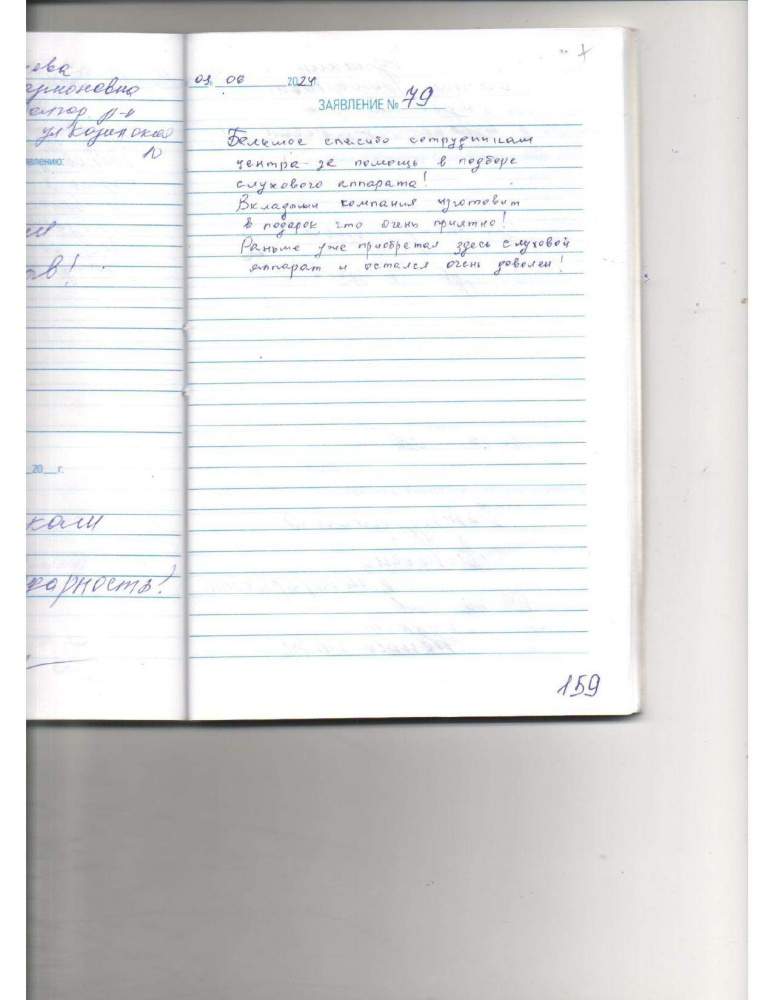 ева
ул Казинская
10
влению:
20 г.
кали
дарность!
03 06 2024
ЗАЯВЛЕНИЕ № 79
Большое спасибо сотрудникам
центра-за помощь в подборе
слухового аппарата!
Вкладыши компания изготовит
в подарок, что очень приятно!
Раньше уже приобретал здесь слуховой
аппарат и остался очень доволен!
159